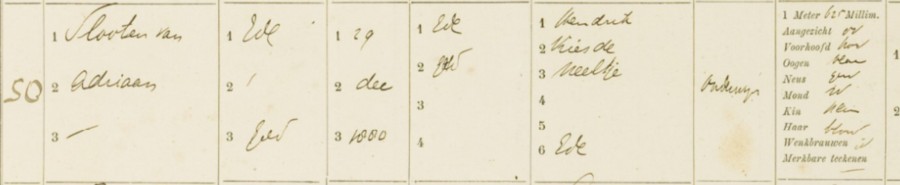 50
1 Slooten van
2 Adriaan
3 —
1 Ede
2 '
3 Geld
1 29
2 dec
3 1880
1 Ede
2 Geld
3
4
1 Hendrik
2 Kiesde
3 Neeltje
4
5
6 Ede
onderwijs
1 Meter 625 Millim.
Aangezicht ov
Voorhoofd
Oogen blau
Neus gew
Mond
Kin klein
Haar blond
Wenkbrauwen id
Merkbare teekenen —
1
2